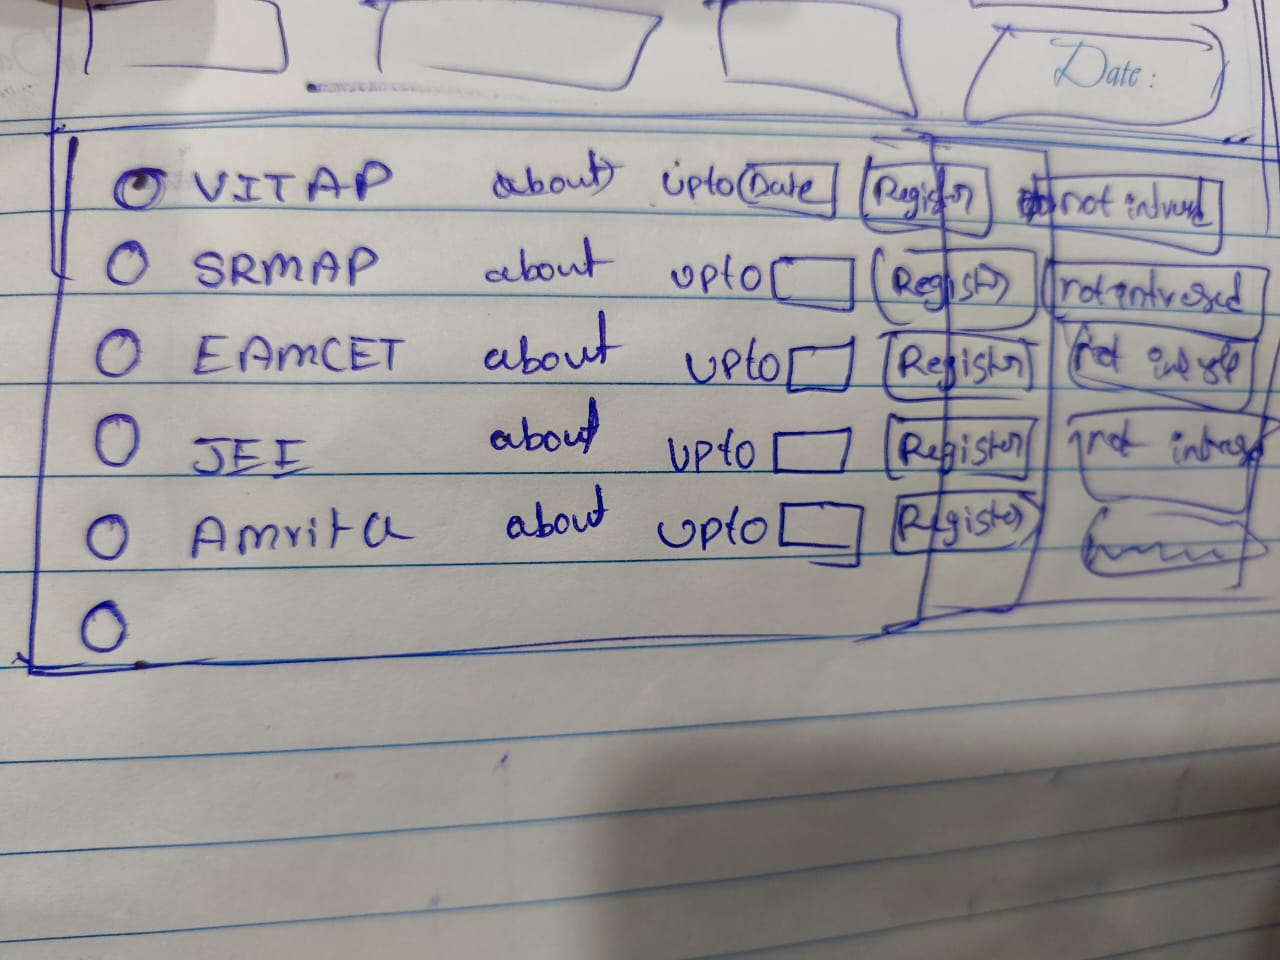 Date:
VITAP about upto Date Register not intrused
SRMAP about upto Register not intrused
EAMCET about upto Register not
JEE about upto Register not
Amrita about upto Register